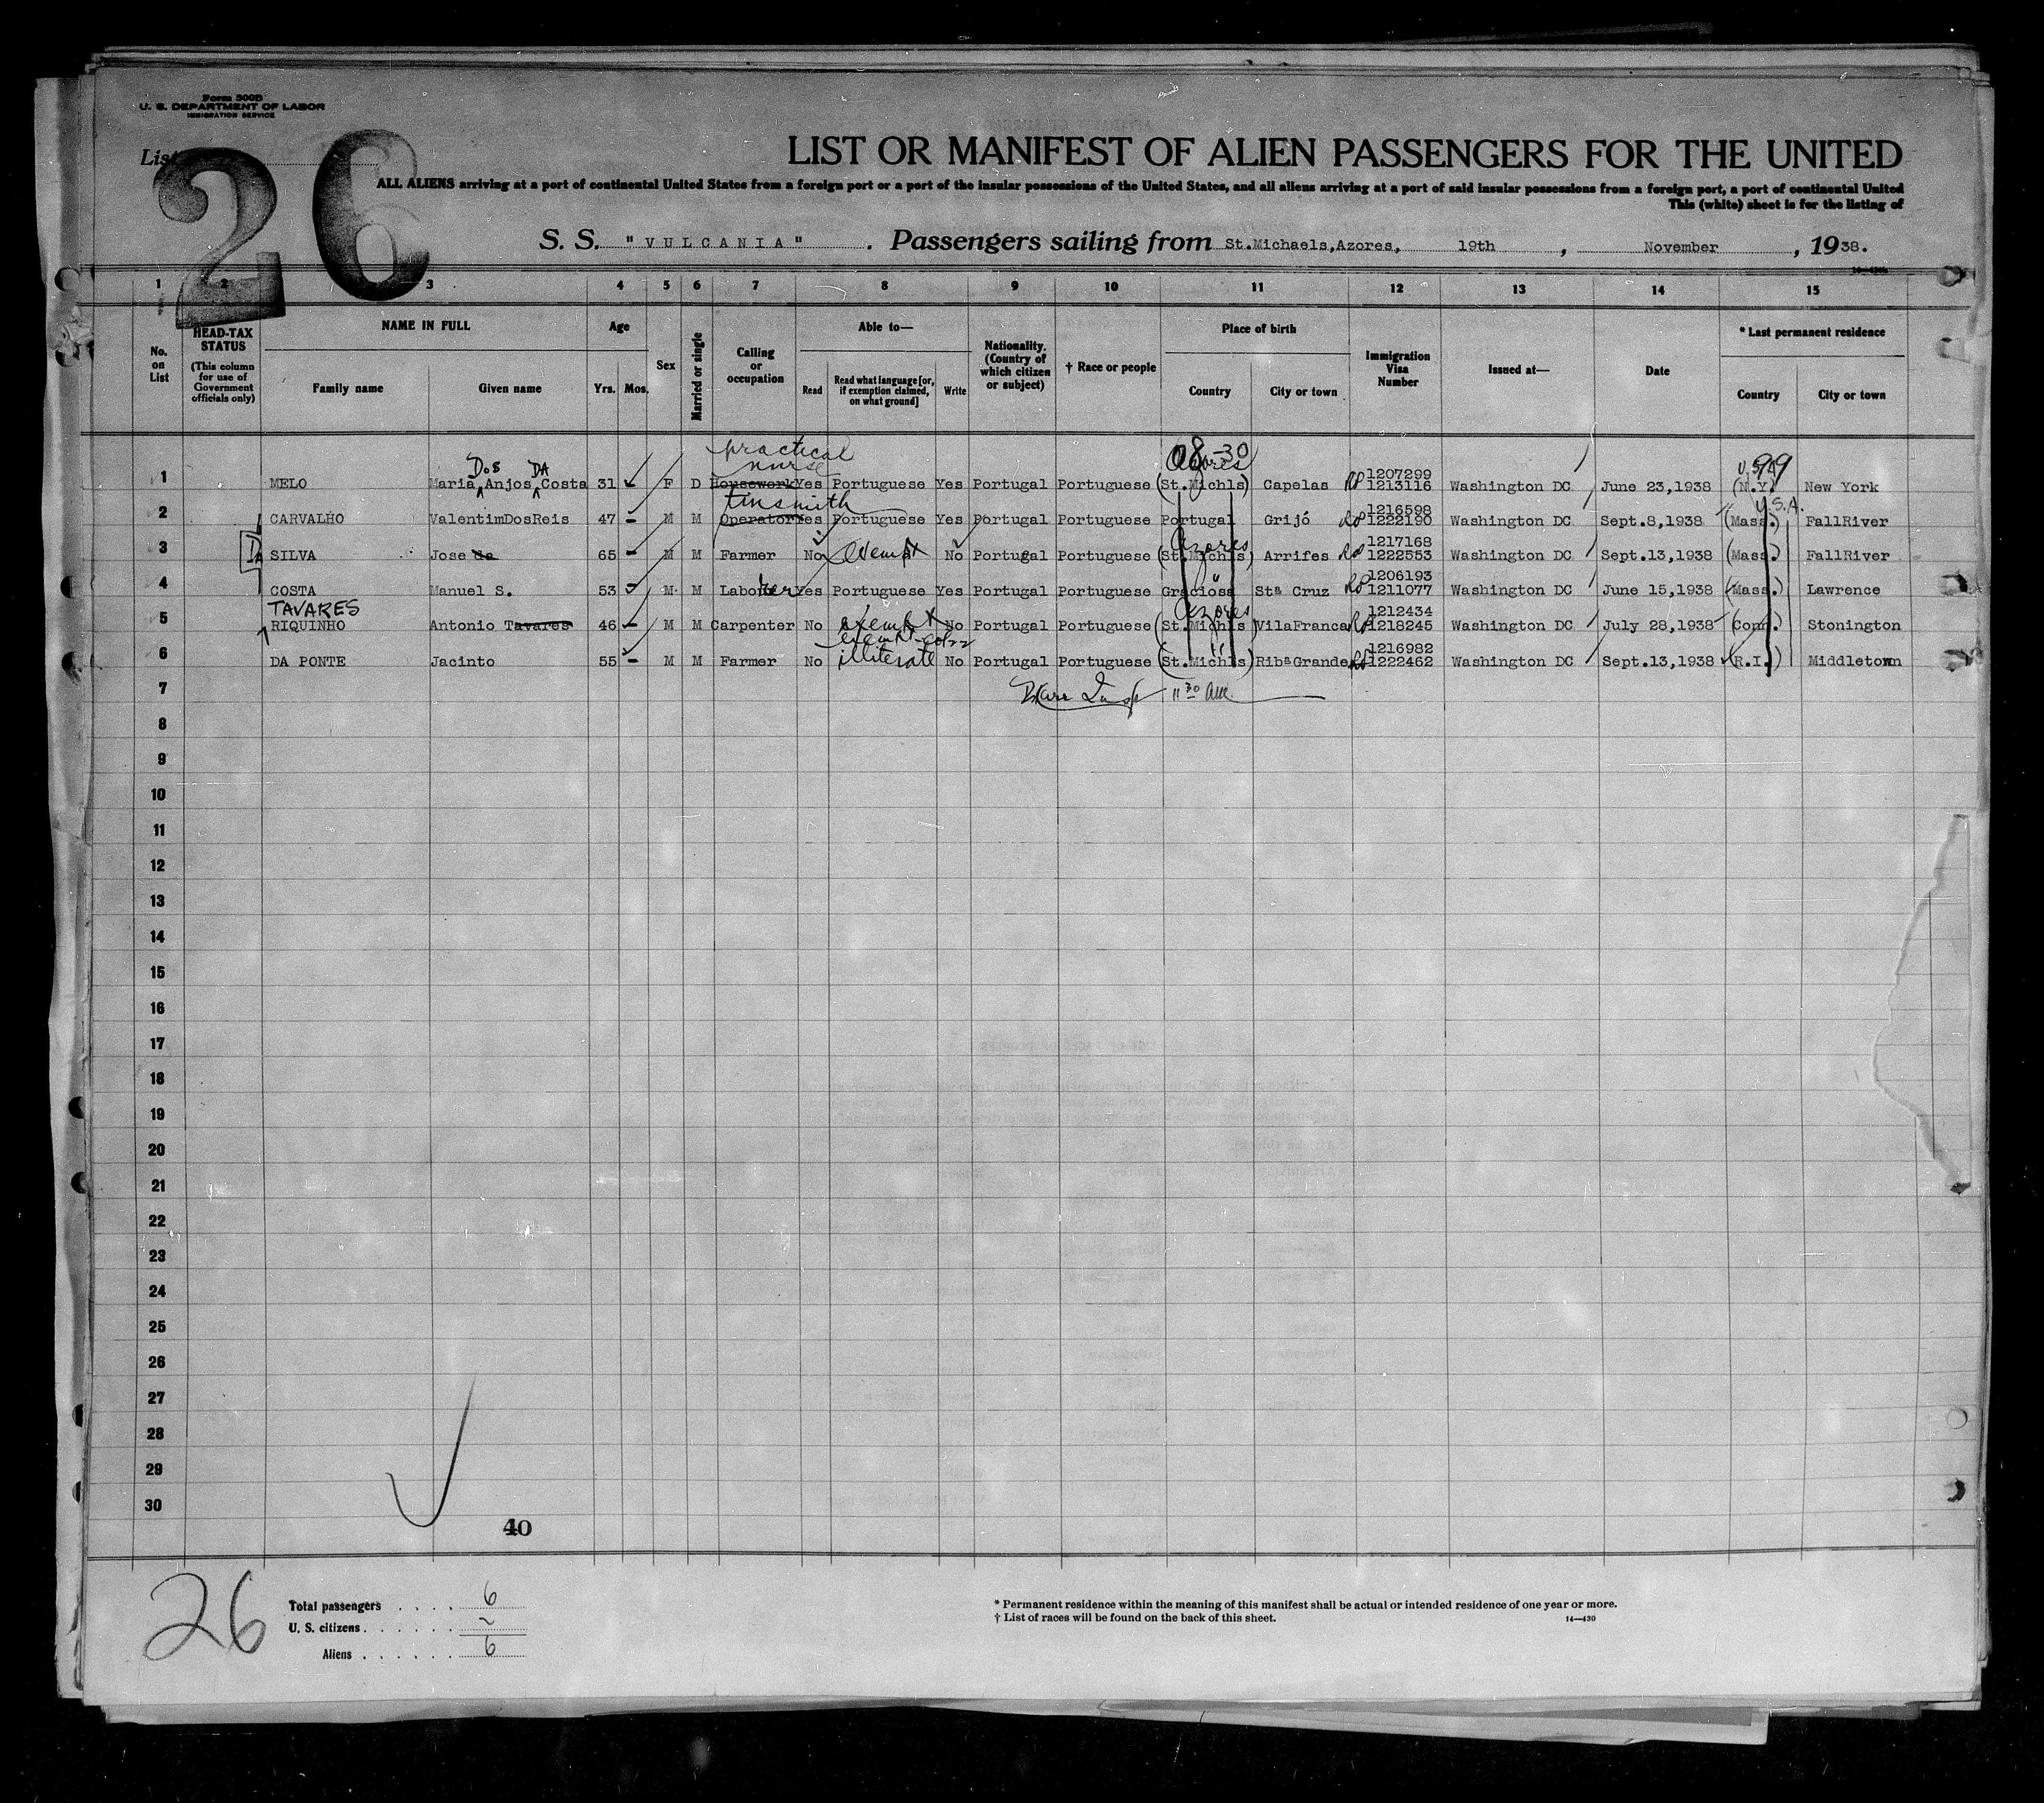 Form 500B
U. S. DEPARTMENT OF LABOR
IMMIGRATION SERVICE
List
26
LIST OR MANIFEST OF ALIEN PASSENGERS FOR THE UNITED
ALL ALIENS arriving at a port of continental United States from a foreign port or a port of the insular possessions of the United States, and all aliens arriving at a port of said insular possessions from a foreign port, a port of continental United
This (white) sheet is for the listing of
S. S. "VULCANIA". Passengers sailing from St.Michaels,Azores, 19th, November, 1938.
1 2 3 4 5 6 7 8 9 10 11 12 13 14 15
No. on List
HEAD-TAX STATUS (This column for use of Government officials only)
NAME IN FULL
Family name Given name
Age
Yrs. Mos.
Sex
Married or single
Calling or occupation
Able to—
Read Read what language [or, if exemption claimed, on what ground] Write
Nationality. (Country of which citizen or subject)
† Race or people
Place of birth
Country City or town
Immigration Visa Number
Issued at—
Date
* Last permanent residence
Country City or town
practical nurse 08-30 Azores U.S.A. 99
Dos DA
1 MELO Maria Anjos Costa 31 F D Housework Yes Portuguese Yes Portugal Portuguese (St.Michls) Capelas RP 1207299 1213116 Washington DC June 23,1938 (N.Y.) New York
tinsmith U.S.A.
2 CARVALHO ValentimDosReis 47 - M M Operator Yes Portuguese Yes Portugal Portuguese Portugal Grijó RP 1216598 1222190 Washington DC Sept.8,1938 (Mass.) FallRiver
Azores
3 Da SILVA Jose da 65 - M M Farmer No exempt No Portugal Portuguese (St.Michls) Arrifes RP 1217168 1222553 Washington DC Sept.13,1938 (Mass.) FallRiver
"
4 COSTA Manuel S. 53 - M M Laborer Yes Portuguese Yes Portugal Portuguese Graciosa Stª Cruz RP 1206193 1211077 Washington DC June 15,1938 (Mass.) Lawrence
TAVARES Azores
5 RIQUINHO Antonio Tavares 46 - M M Carpenter No exempt No Portugal Portuguese (St.Michls) VilaFranca RP 1212434 1218245 Washington DC July 28,1938 (Conn.) Stonington
exempt "
6 DA PONTE Jacinto 55 - M M Farmer No illiterate No Portugal Portuguese (St.Michls) RibªGrande RP 1216982 1222462 Washington DC Sept.13,1938 (R.I.) Middletown
7 Insp 11 30 AM
8
9
10
11
12
13
14
15
16
17
18
19
20
21
22
23
24
25
26
27
28
29
30
40
26
Total passengers . . . . 6
U. S. citizens . . . . . . ~
Aliens . . . . . . 6
* Permanent residence within the meaning of this manifest shall be actual or intended residence of one year or more.
† List of races will be found on the back of this sheet. 14—430